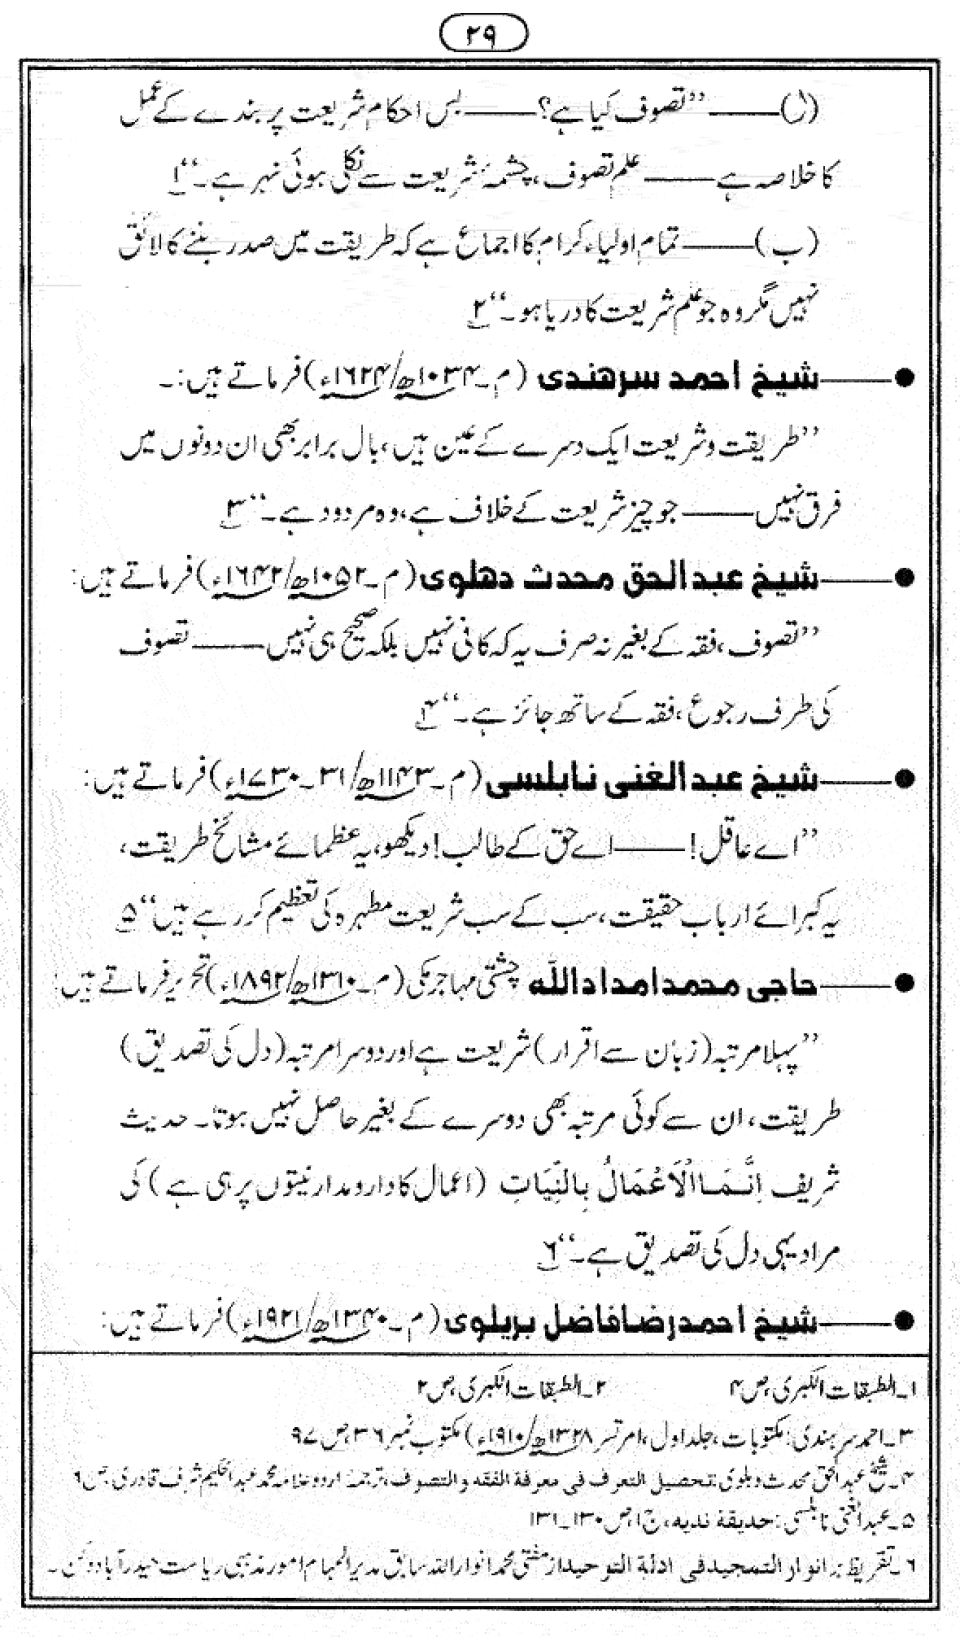 ۲۹
(ا)——”تصوف کیا ہے؟——بس احکام شریعت پر بندے کے عمل
کا خلاصہ ہے——علم تصوف، چشمۂ شریعت سے نکلی ہوئی نہر ہے۔“۱
(ب)——تمام اولیاء کرام کا اجماع ہے کہ طریقت میں صدر بننے کا لائق
نہیں مگر وہ جو علم شریعت کا دریا ہو۔“۲
●——شیخ احمد سرھندی (م۔۱۰۳۴ھ/۱۶۲۴ء) فرماتے ہیں:۔
”طریقت و شریعت ایک دسرے کے عین ہیں، بال برابر بھی ان دونوں میں
فرق نہیں——جو چیز شریعت کے خلاف ہے، وہ مردود ہے۔“۳
●——شیخ عبدالحق محدث دھلوی (م۔۱۰۵۲ھ/۱۶۴۲ء) فرماتے ہیں:
”تصوف، فقہ کے بغیر نہ صرف یہ کہ کافی نہیں بلکہ صحیح ہی نہیں——تصوف
کی طرف رجوع، فقہ کے ساتھ جائز ہے۔“۴
●——شیخ عبدالغنی نابلسی (م۔۱۱۴۳ھ/۳۱۔۱۷۳۰ء) فرماتے ہیں:
”اے عاقل!——اے حق کے طالب! دیکھو، یہ عظمائے مشائخ طریقت،
یہ کبرائے ارباب حقیقت، سب کے سب شریعت مطہرہ کی تعظیم کر رہے ہیں“۵
●——حاجی محمد امداد اللہ چشتی مہاجر مکی (م۔۱۳۱۰ھ/۱۸۹۲ء) تحریر فرماتے ہیں:
”پہلا مرتبہ (زبان سے اقرار) شریعت ہے اور دوسرا مرتبہ (دل کی تصدیق)
طریقت، ان سے کوئی مرتبہ بھی دوسرے کے بغیر حاصل نہیں ہوتا۔ حدیث
شریف اِنَّمَا الْاَعْمَالُ بِالنِّیَاتِ (اعمال کا دارومدار نیتوں پر ہی ہے) کی
مراد یہی دل کی تصدیق ہے۔“۶
●——شیخ احمد رضا فاضل بریلوی (م۔۱۳۴۰ھ/۱۹۲۱ء) فرماتے ہیں:
۱۔ الطبقات الکبریٰ، ص۴ ۲۔ الطبقات الکبریٰ، ص۲
۳۔ احمد سرہندی: مکتوبات، جلد اول، امرتسر ۱۳۲۸ھ/۱۹۱۰ء) مکتوب نمبر ۳۶، ص ۹۷
۴۔ شیخ عبدالحق محدث دہلوی: تحصیل التعرف فی معرفۃ الفقہ و التصوف، ترجمۂ اردو علامہ محمد عبدالحکیم شرف قادری، ص۶
۵۔ عبدالغنی نابلسی: حدیقۂ ندیہ، ج۱، ص ۱۳۰۔۱۳۱
۶۔ تقریظ بر انوار التمجید فی ادلۃ التوحید از مفتی محمد انوار اللہ سابق مدیر المہام امور مذہبی ریاست حیدر آباد دکن۔